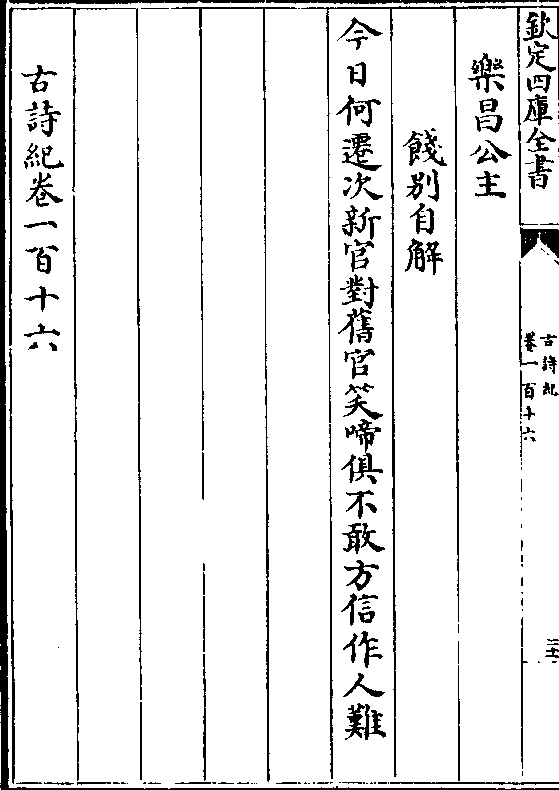 欽定四庫全書
古詩紀
卷一百十六
樂昌公主
餞別自解
今日何遷次新官對舊官笑啼俱不敢方信作人難
古詩紀卷一百十六